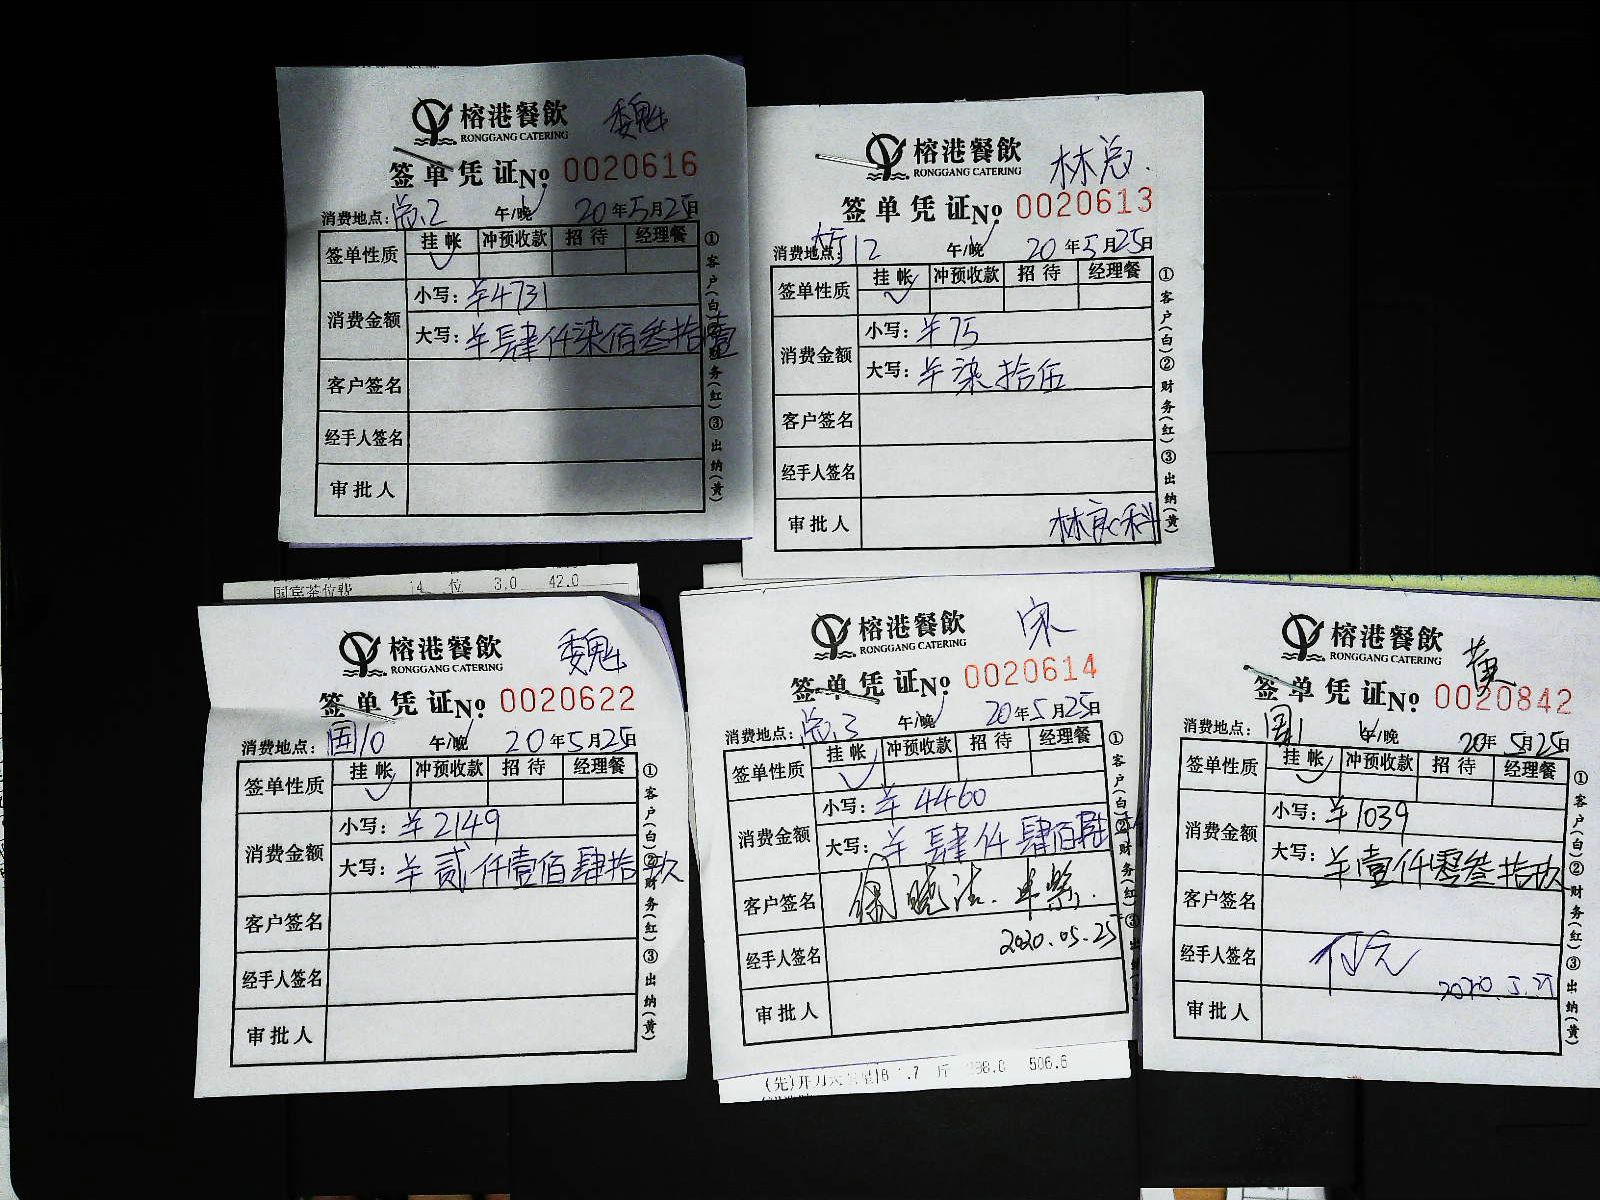 榕港餐飲 魏
RONGGANG CATERING
签单凭证No. 0020616
消费地点: 总.2 午/晚 20年5月25日
签单性质 挂帐 冲预收款 招待 经理餐
消费金额 小写: ¥4731
大写: ¥肆仟柒佰叁拾壹
客户签名
经手人签名
审批人
①客户(白)②财务(红)③出纳(黄)
榕港餐飲 林总.
RONGGANG CATERING
签单凭证No. 0020613
消费地点: 12 午/晚 20年5月25日
签单性质 挂帐 冲预收款 招待 经理餐
消费金额 小写: ¥75
大写: ¥柒拾伍
客户签名
经手人签名
审批人 林
①客户(白)②财务(红)③出纳(黄)
国宾茶位费 14 位 3.0 42.0
榕港餐飲 魏
RONGGANG CATERING
签单凭证No. 0020622
消费地点: 国10 午/晚 20年5月25日
签单性质 挂帐 冲预收款 招待 经理餐
消费金额 小写: ¥2149
大写: ¥贰仟壹佰肆拾玖
客户签名
经手人签名
审批人
①客户(白)②财务(红)③出纳(黄)
榕港餐飲 宋
RONGGANG CATERING
签单凭证No. 0020614
消费地点: 总.3 午/晚 20年5月25日
签单性质 挂帐 冲预收款 招待 经理餐
消费金额 小写: ¥4460
大写: ¥肆仟肆佰陆
客户签名
2020.05.25
经手人签名
审批人
①客户(白)②财务(红)③出
506.6
榕港餐飲 黄
RONGGANG CATERING
签单凭证No. 0020842
消费地点: 国1 午/晚 20年5月25日
签单性质 挂帐 冲预收款 招待 经理餐
消费金额 小写: ¥1039
大写: ¥壹仟零叁拾玖
客户签名
经手人签名
审批人
①客户(白)②财务(红)③出纳(黄)